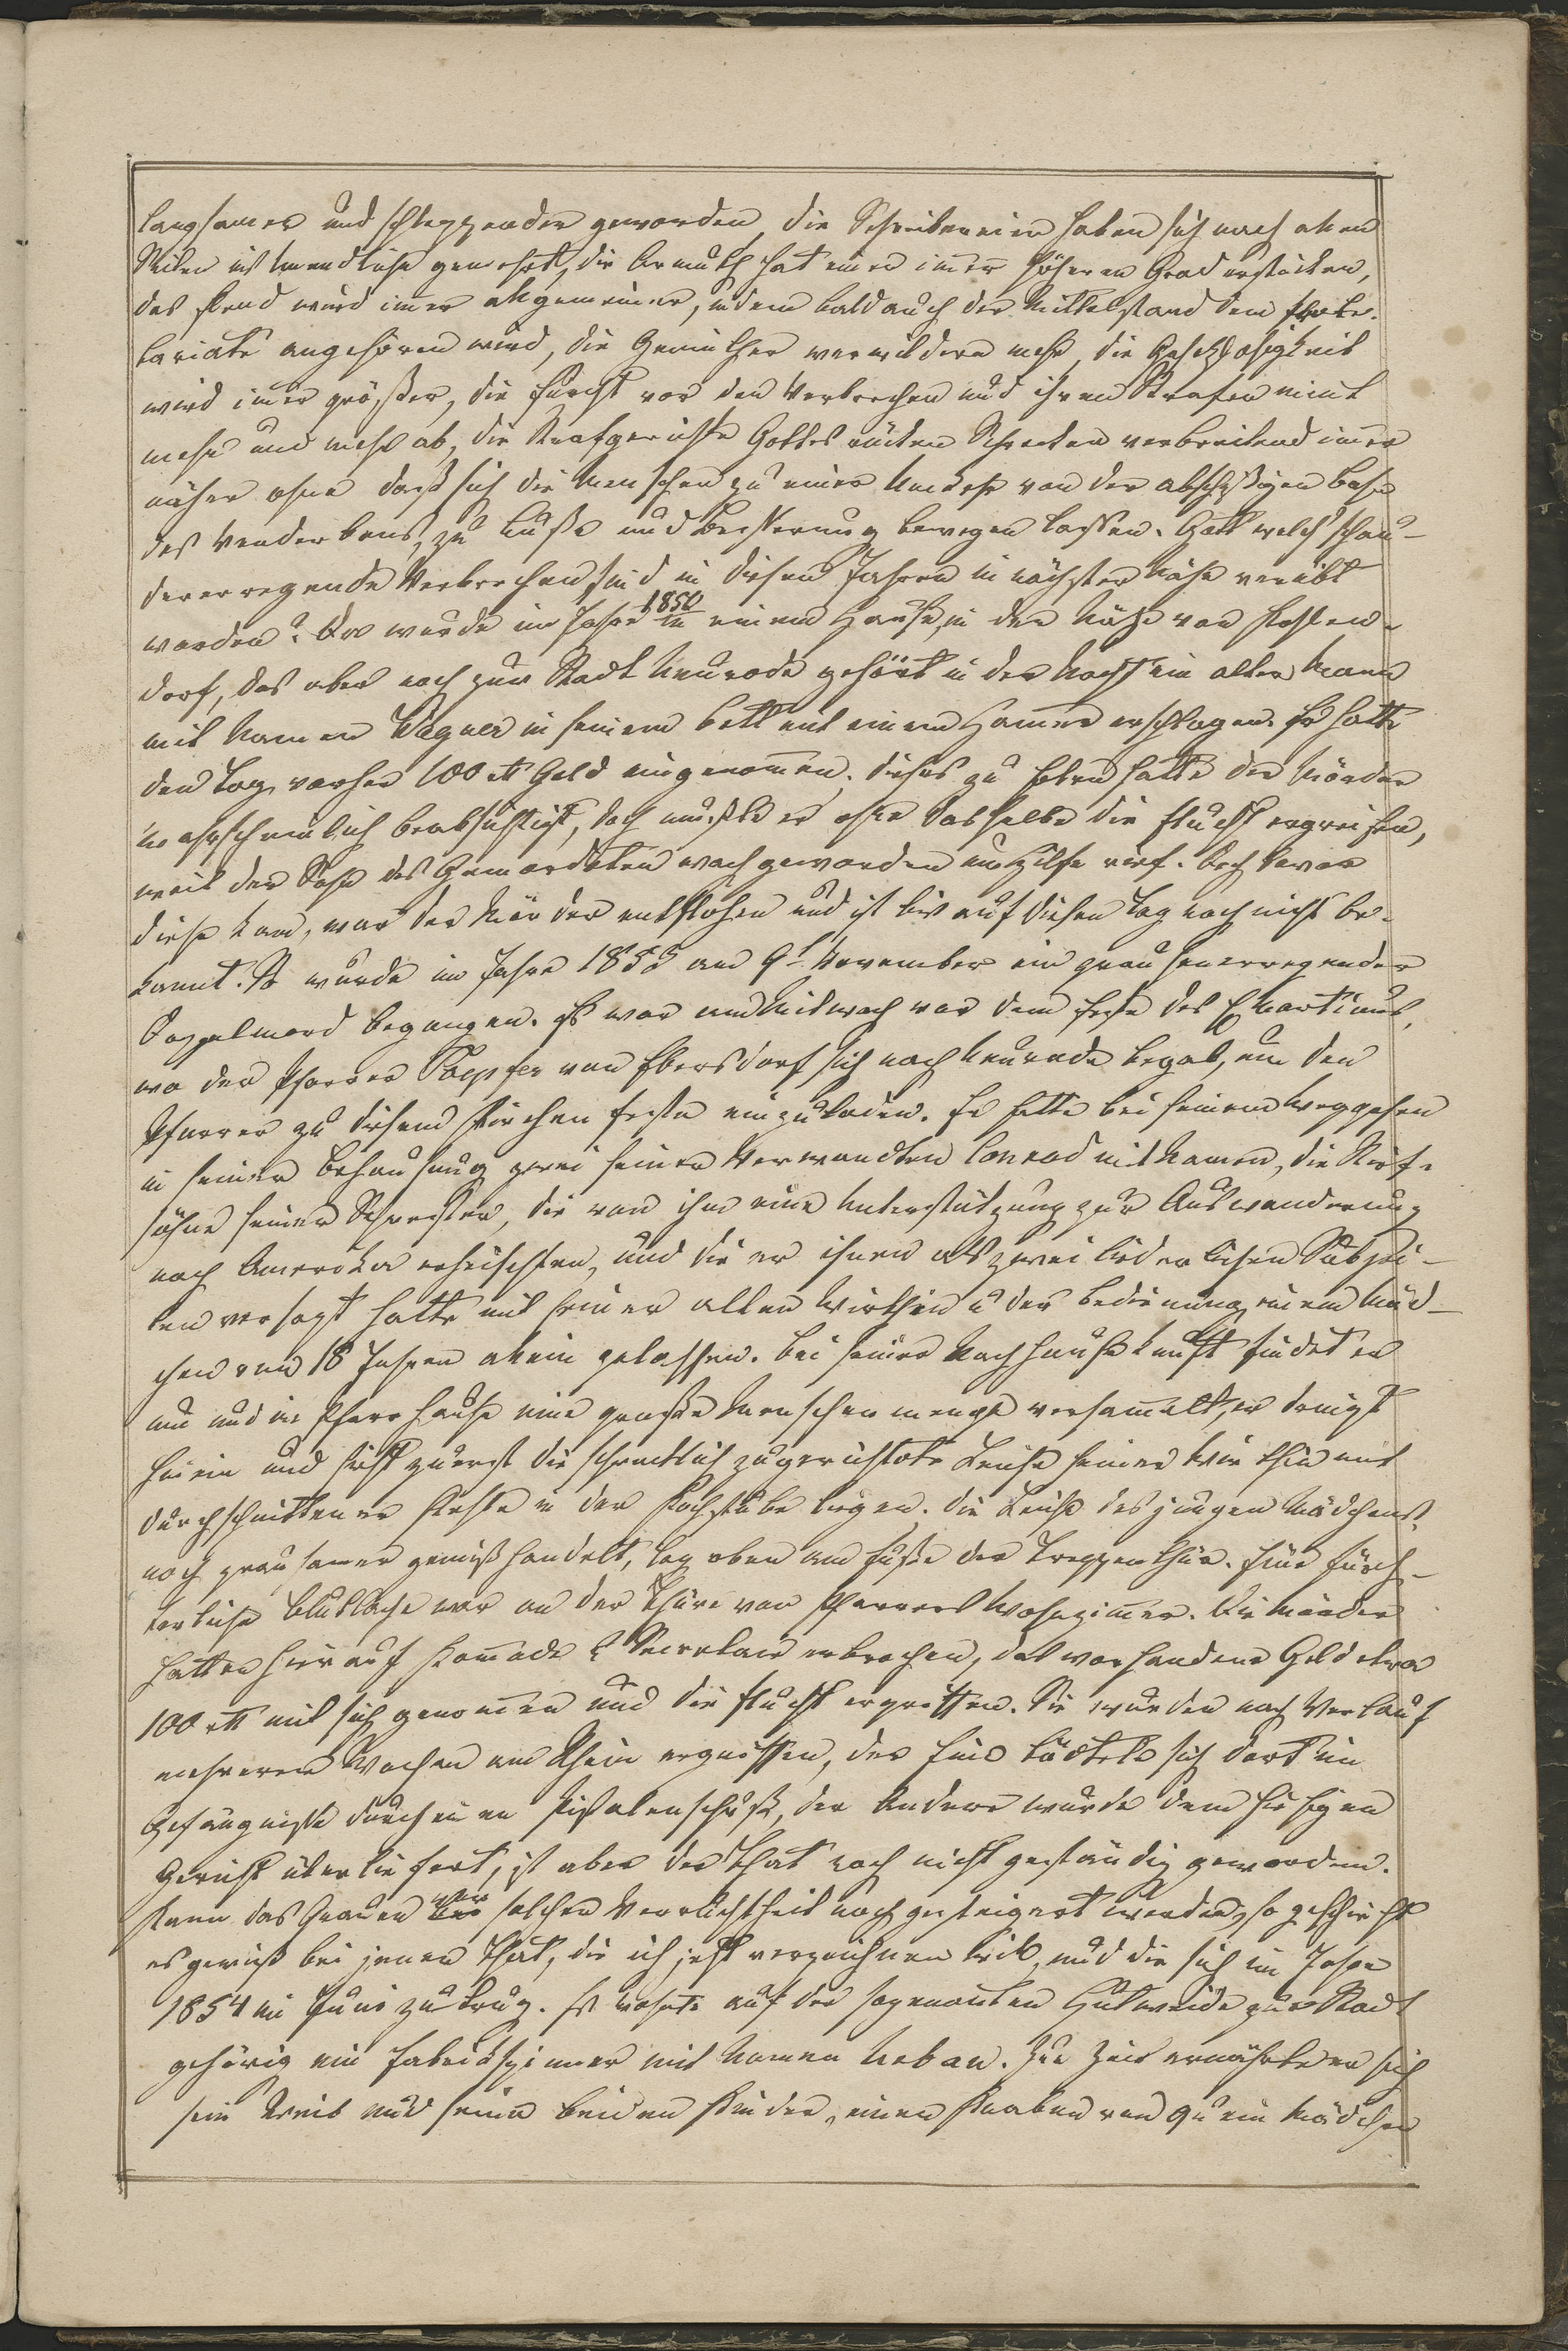 langsamer und schleppender geworden, die Schreibereien haben sich nach allen
Seiten ins Unendliche gemehrt, die Armuth hat einen im̅er höheren Grad erstiegen,
das Elend wird im̅er allgemeiner, indem bald auch der Mittelstand dem Prole-
tariate angehören wird, die Gemüther verwildern mehr, die Gesetzlosigkeit
wird im̅er größer, die Furcht vor den Verbrechen und ihren Strafen nim̅t
mehr und mehr ab, die Strafgerichte Gottes rücken Schrecken verbreitend im̅er
näher ohne daß sich die Menschen zu einer Umkehr von der abschüßigen Bahn
des Verderbens, zu Buße und Besserung bewegen lassen. Gott welch' schau-
dererregende Verbrechen sind in diesen Jahren in nächster Nähe verübt
worden? So wurde im Jahre 1850 in einem Hause, in der Nähe von Kohlen-
dorf, das aber noch zur Stadt Neurode gehört in der Nacht ein alter Mann
mit Namen Wagner in seinem Bett mit einem Ham̅er erschlagen. Er hatte
den Tag vorher 100 rtl Geld eingenom̅en; dieses zu holen hatte der Mörder
wahrscheinlich beabsichtigt, doch mußte er ohne dasselbe die Flucht ergreifen,
weil der Sohn des Gemordeten wach geworden um Hilfe rief. Doch bevor
diese kam, war der Mörder entflohen und ist bis auf diesen Tag noch nicht be-
kannt. So wurde im Jahre 1853 am 9t November ein grausenerregender
Doppelmord begangen. Es war am Mitwoch vor dem Feste des Martinus,
wo der Pfarrer Toepfer von Ebersdorf sich nach Neurode begab, um den
Pfarrer zu diesem Kirchenfeste einzuladen. Er hatte bei seinem Weggehen
in seiner Behausung zwei seiner Verwandten Conrad mit Namen, die Stief-
söhne seiner Schwester, die von ihm eine Unterstützung zur Auswanderung
nach Amerika erheischten, und die er ihnen als zwei liederlichen Subjek-
ten versagt hatte mit seiner alten Wirthin u der Bedienung einem Mäd-
chen von 18 Jahren allein gelassen. Bei seiner Nachhausekunft findet er
um und im Pfarrhause eine große Menschenmenge versam̅elt, er dringt
hinein und sieht zuerst die schrecklich zugerichtete Leiche seiner Wirthin mit
durchschnittener Kehle in der Kochstube liegen. Die Leiche des jungen Mädchens,
noch grausamer gemißhandelt, lag oben am Fuße der Treppenthür. Eine fürch-
terliche Blutlache war an der Thüre von Pfarrers Wohnzim̅er. Die Mörder
hatten hierauf Kom̅ode & Secretair erbrochen, das vorhandene Geld etwa
100 rtl mit sich genom̅en und die Flucht ergriffen. Sie wurden nach Verlauf
mehrerer Wochen am Rhein ergriffen, der Eine tödtete sich dort im
Gefängnisse durch einen Pistolenschuß, der Andere wurde dem hiesigen
Gericht überliefert, ist aber der That noch nicht geständig geworden.
Kann das Grauen vor solcher Verruchtheit noch gesteigert werden, so geschieht
es gewiß bei jener That, die ich jetzt verzeichnen will, und die sich im Jahre
1854 im Juni zutrug. Es wohnte auf der sogenannten Hutweide zur Stadt
gehörig ein Fabrikspinner mit Namen Neban. Zur Zeit ernährte er sich
sein Weib und seine beiden Kinder, einen Knaben von 9 u ein Mädchen